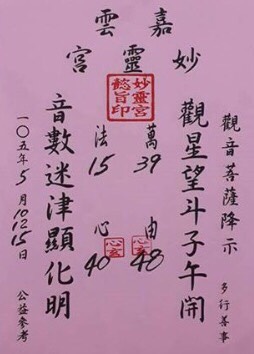 嘉雲
妙靈宮
妙靈宮懿旨印
觀音菩薩降示
多行善事
觀星望斗子午開
萬39
由48
心玄
法15
心40
心玄
音數迷津顯化明
一〇五年5月10 12 15日
公益參考